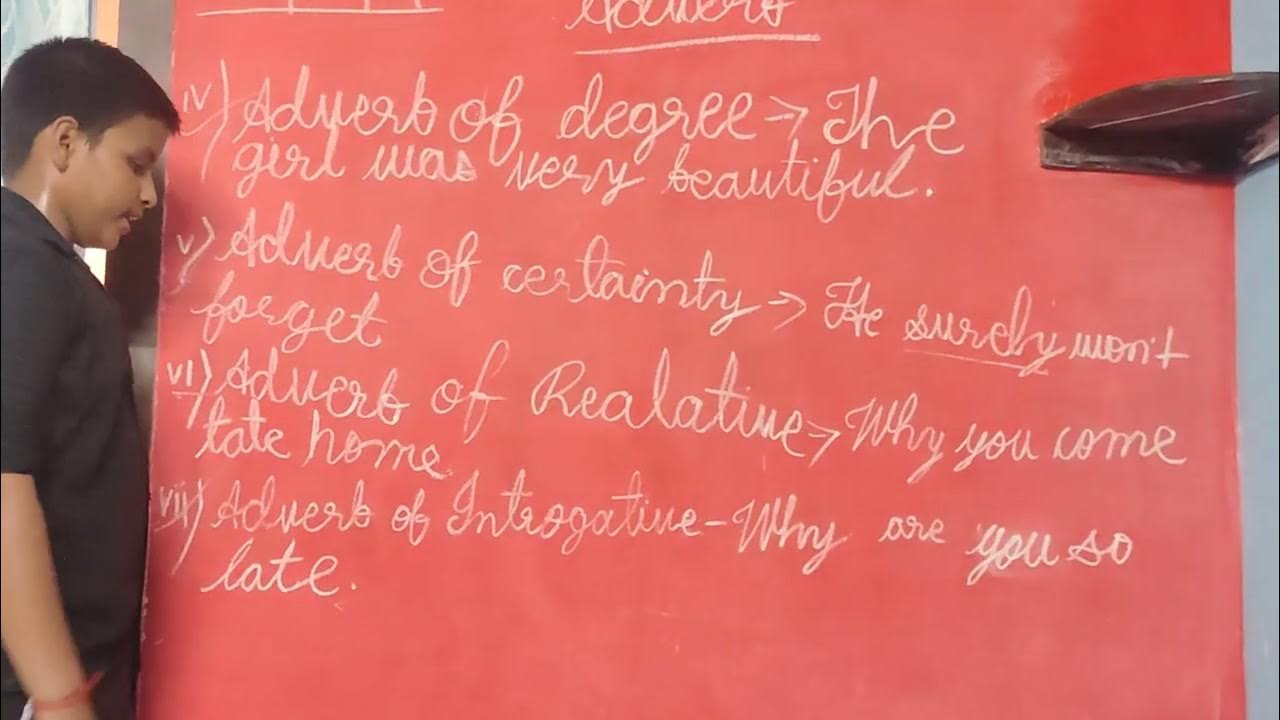 Adverb
iv) Adverb of degree → The
girl was very beautiful.
v) Adverb of certainty → He surely won't
forget
vi) Adverb of Realative → Why you come
tate home.
vii) Adverb of Introgative - Why are you so
late.